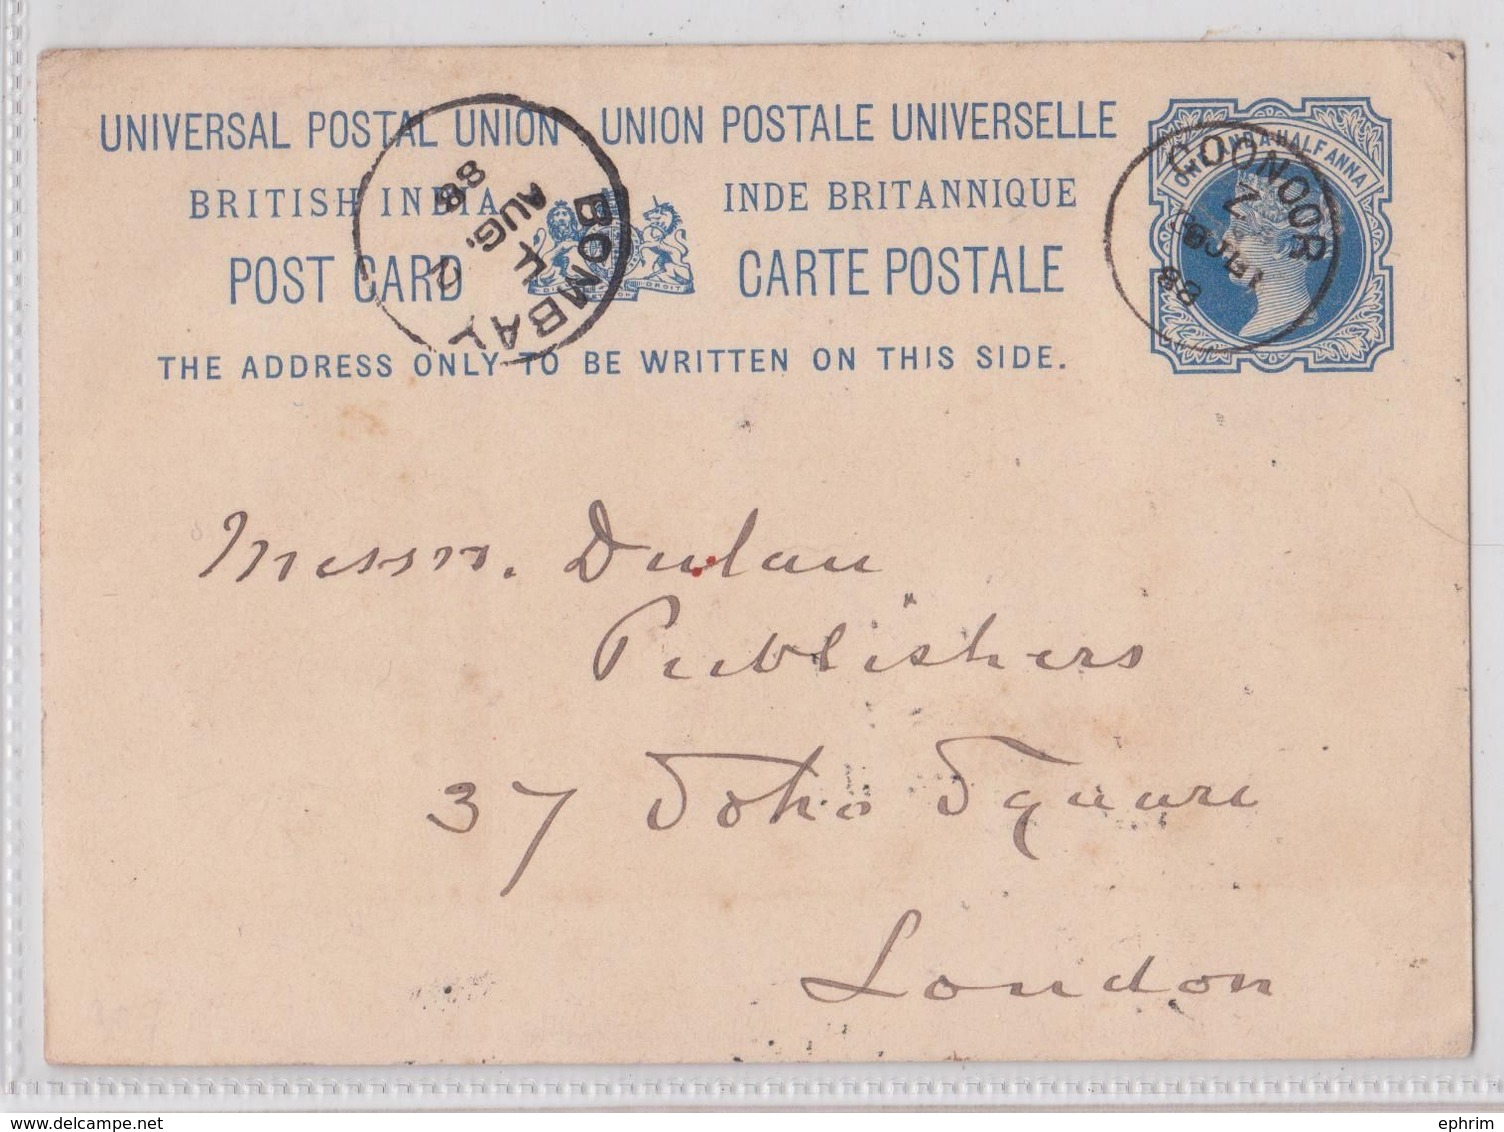 UNIVERSAL POSTAL UNION UNION POSTALE UNIVERSELLE
BRITISH INDIA INDE BRITANNIQUE
POST CARD CARTE POSTALE
THE ADDRESS ONLY TO BE WRITTEN ON THIS SIDE.
HALF ANNA
COONOOR
Z
88
BOMBAY
AUG.
88
DROIT
Messrs. Dulau
Publishers
37 Soho Square
London
ephrim